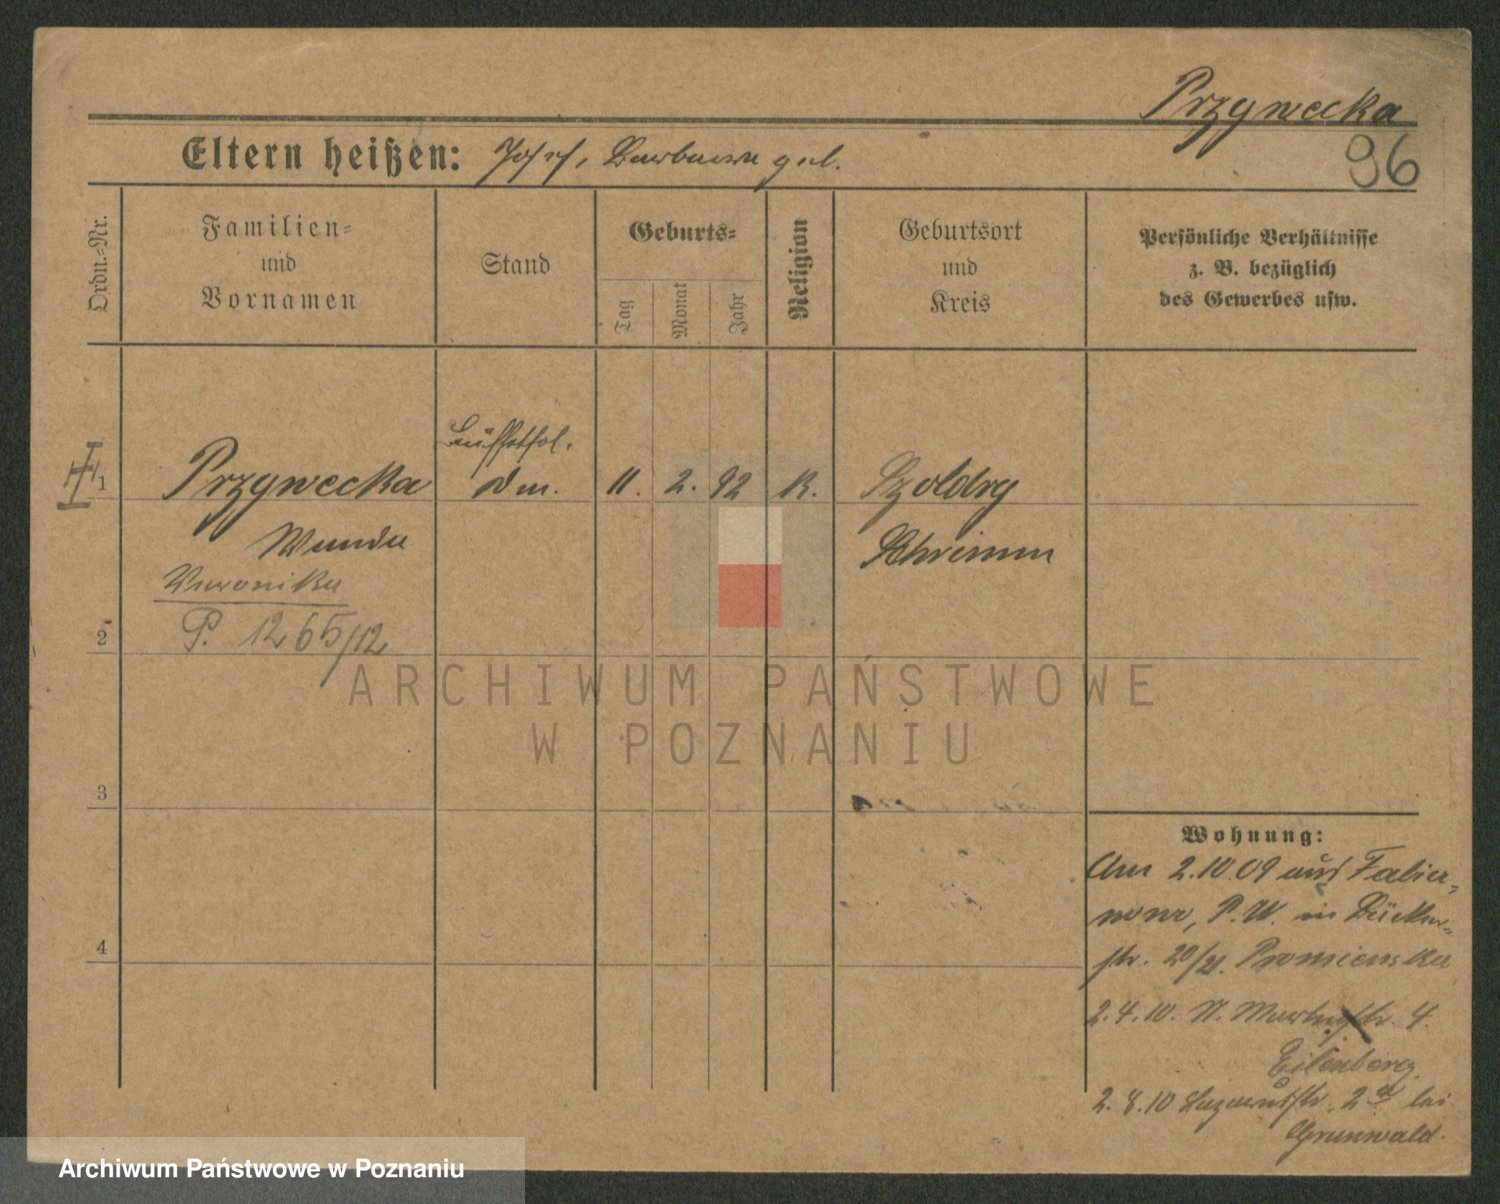 Przywecka
96
Eltern heißen: Josef, Barbara geb.
Ordn.-Nr.
Familien-
und
Vornamen
Stand
Geburts-
Tag
Monat
Jahr
Religion
Geburtsort
und
Kreis
Persönliche Verhältnisse
z. B. bezüglich
des Gewerbes usw.
1 Przywecka 11. 2. 92 K. Szoldry
Wanda Schrimm
Veronika
P. 1265/12
2
3
4
Wohnung:
Am 2.10.09 aus Fabia-
nowo, P.W. in Bäcker-
str. 20/21. Promienska
2.4.10. N. Martinstr. 4.
Eilenberg.
2.8.10 Lazarusstr. 2a bei
Grunwald.
ARCHIWUM PAŃSTWOWE
W POZNANIU
Archiwum Państwowe w Poznaniu